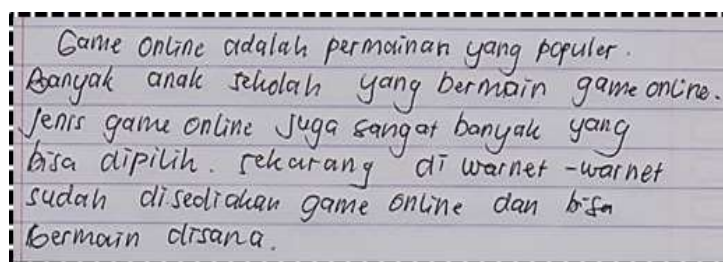 Game online adalah permainan yang populer.
Banyak anak sekolah yang bermain game online.
Jenis game online juga sangat banyak yang
bisa dipilih. sekarang di warnet-warnet
sudah disediakan game online dan bisa
bermain disana.